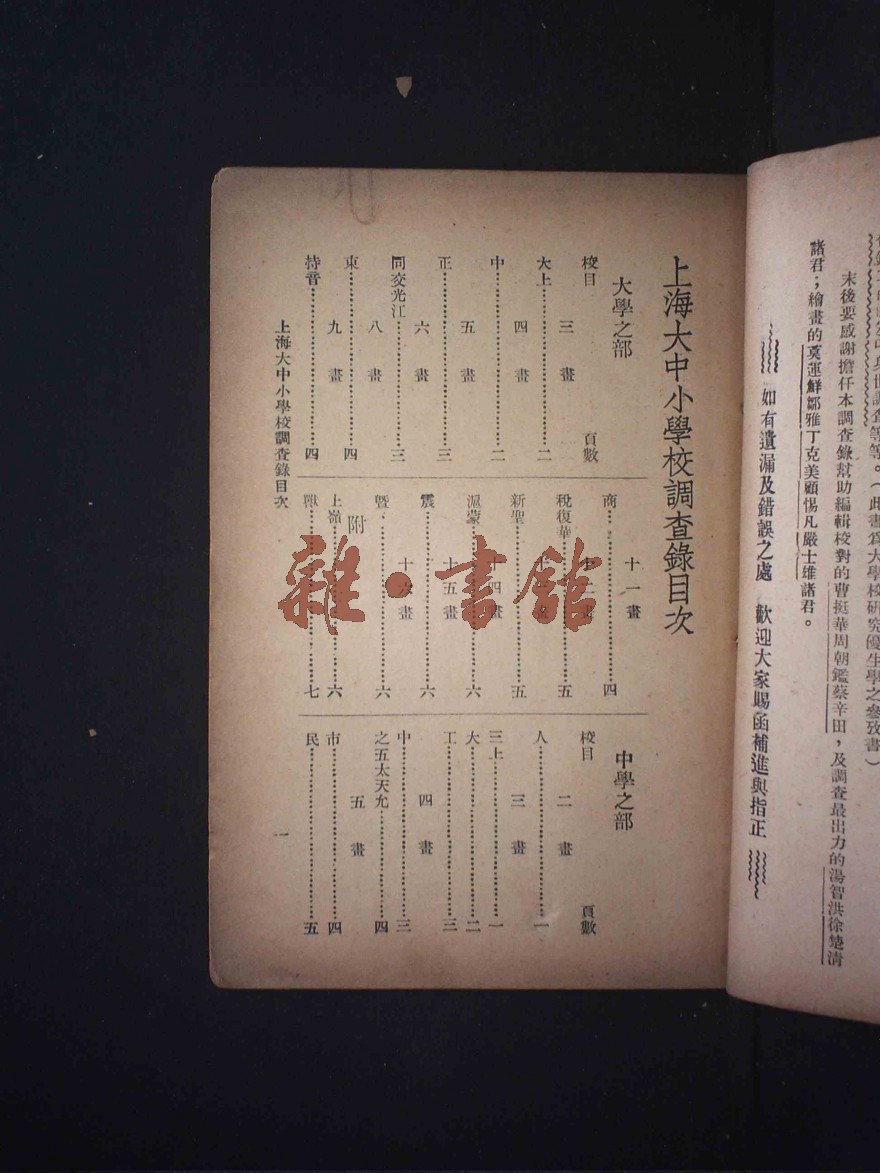 末後要感謝擔任本調查錄幫助編輯校對的曹挺華周朝鑑蔡辛田,及調查最出力的湯智洪徐楚清
諸君;繪畫的奚蓮鮮鄒雅丁克美顧惕凡嚴士雄諸君。
如有遺漏及錯誤之處 歡迎大家賜函補進與指正
上海大中小學校調查錄目次
大學之部
校目 頁數
三畫
大上……二
四畫
中……二
五畫
正……三
六畫
同交光江……三
八畫
東……四
九畫
持音……四
十一畫
商……四
十二畫
稅復華……五
十三畫
新聖……五
十四畫
滬蒙……六
十五畫
震……六
十六畫
曁……六
附
上嶺……六
……七
中學之部
校目 頁數
二畫
人……一
三畫
三上……一
大……二
工……三
四畫
中……三
之五太天允……四
五畫
市……四
民……五
上海大中小學校調查錄目次
一
雜·書館